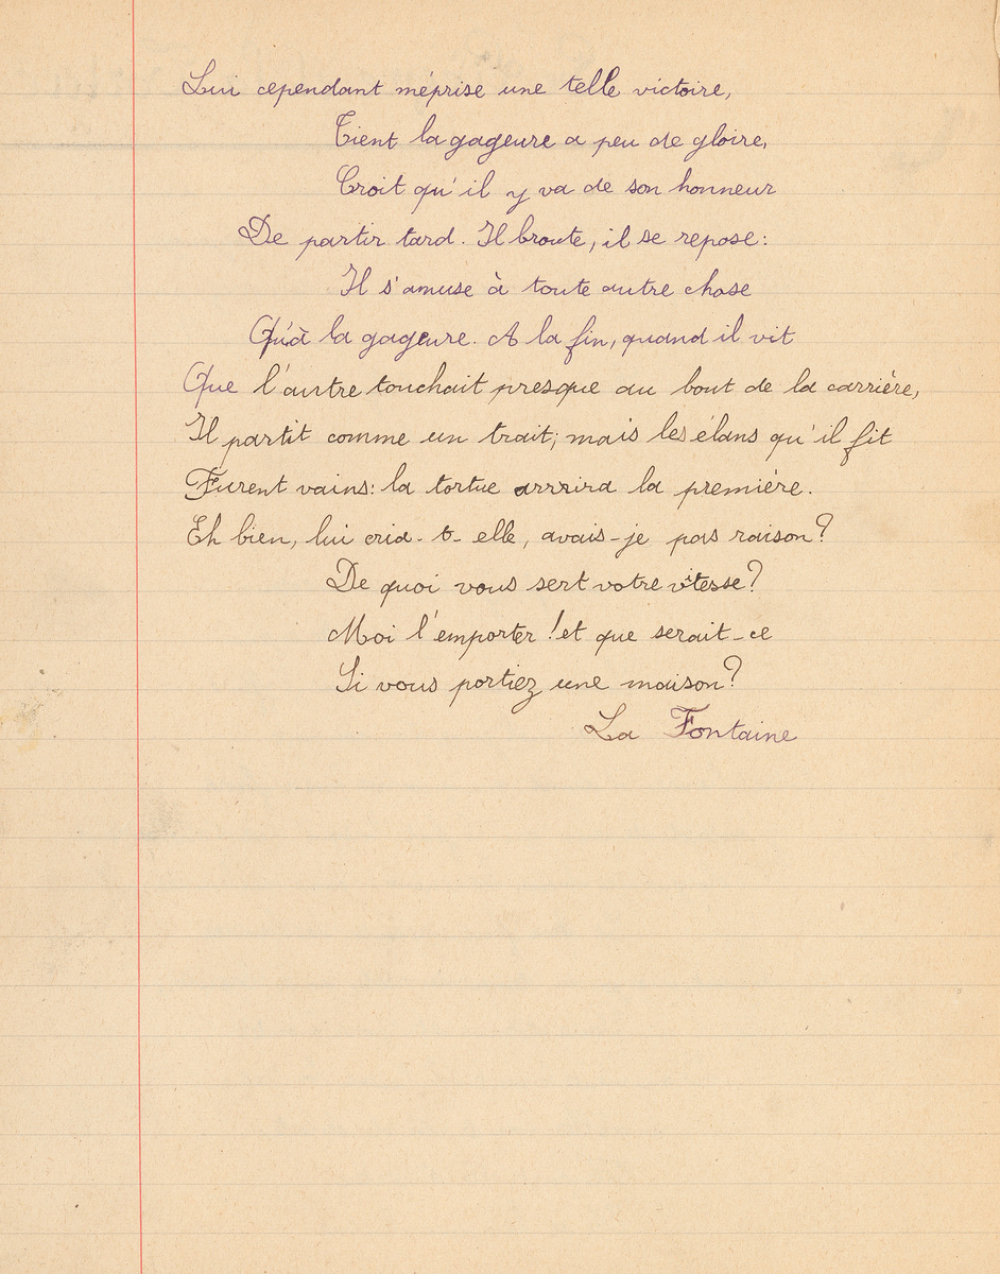 Lui cependant méprise une telle victoire,
Tient la gageure a peu de gloire,
Croit qu'il y va de son honneur
De partir tard. Il broute, il se repose:
Il s'amuse à toute autre chose
Qu'à la gageure. A la fin, quand il vit
Que l'autre touchait presque au bout de la carrière,
Il partit comme un trait; mais les élans qu'il fit
Furent vains: la tortue arrriva la première.
Eh bien, lui cria-t-elle, avais-je pas raison?
De quoi vous sert votre vitesse?
Moi l'emporter! et que serait-ce
Si vous portiez une maison?
La Fontaine